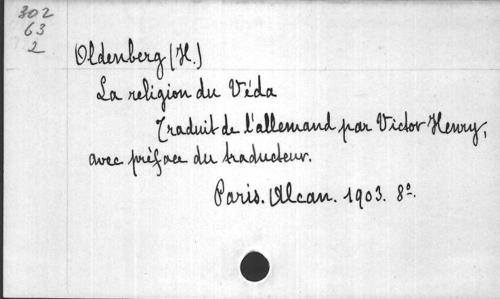 302
63
2
Oldenberg (H.)
La religion du Véda
Traduit de l'allemand par Victor Henry,
avec préface du traducteur.
Paris. Alcan. 1903. 8º.